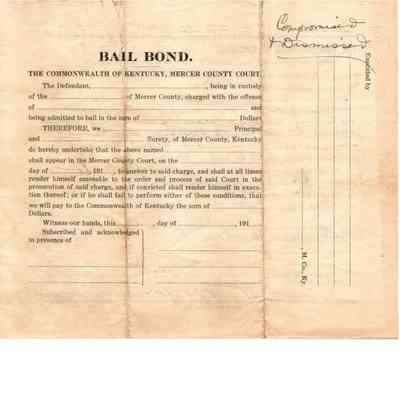 Compromised
& Dismissed
BAIL BOND.
THE COMMONWEALTH OF KENTUCKY, MERCER COUNTY COURT.
The Defendant, , being in custody
of the of Mercer County, charged with the offense
of and
being admitted to bail in the sum of Dollars
THEREFORE, we Principal
and Surety, of Mercer County, Kentucky
do hereby undertake that the above named
shall appear in the Mercer County Court, on the
day of , 191 , to answer to said charge, and shall at all times
render himself amenable to the order and process of said Court in the
prosecution of said charge, and if convicted shall render himself in execu-
tion thereof; or if he shall fail to perform either of these conditions, that
we will pay to the Commonwealth of Kentucky the sum of
Dollars.
Witness our hands, this day of , 191
Subscribed and acknowledged
in presence of
by
, M. Co., Ky.